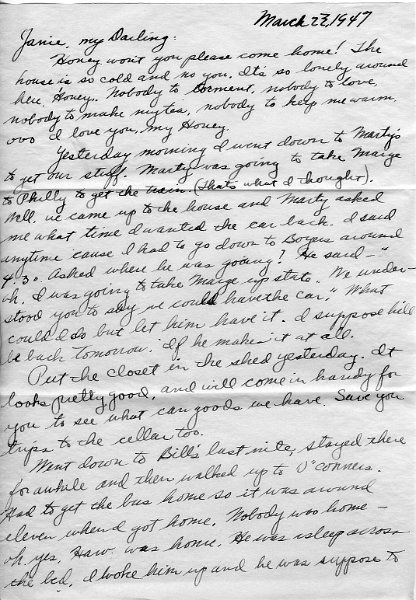 March 23, 1947
Janie, my Darling:
Honey won't you please come home! The
house is so cold and no you. It's so lonely around
here, Honey. Nobody to torment, nobody to love,
nobody to make my tea, nobody to keep me warm,
ovo I love you, my Honey.
Yesterday morning I went down to Marty's
to get our stuff. Marty was going to take Marge
to Philly to get the train. (That's what I thought).
Well, we came up to the house and Marty asked
me what time I wanted the car back. I said
anytime 'cause I had to go down to Boyers around
4.30. Asked where he was going? He said – "
oh, I was going to take Marge up state. We under-
stood you to say we could have the car." What
could I do but let him have it. I suppose hell
be back tomorrow. If he makes it at all.
Put the closet in the shed yesterday. It
looks pretty good, and will come in handy for
you to see what can goods we have. Save you
trips to the cellar too.
Went down to Bill's last nite, stayed there
for awhile and then walked up to O'Conners.
Had to get the bus home so it was around
eleven when I got home. Nobody was home –
oh yes, Haw. was home. He was asleep across
the bed, I woke him up and he was suppose to